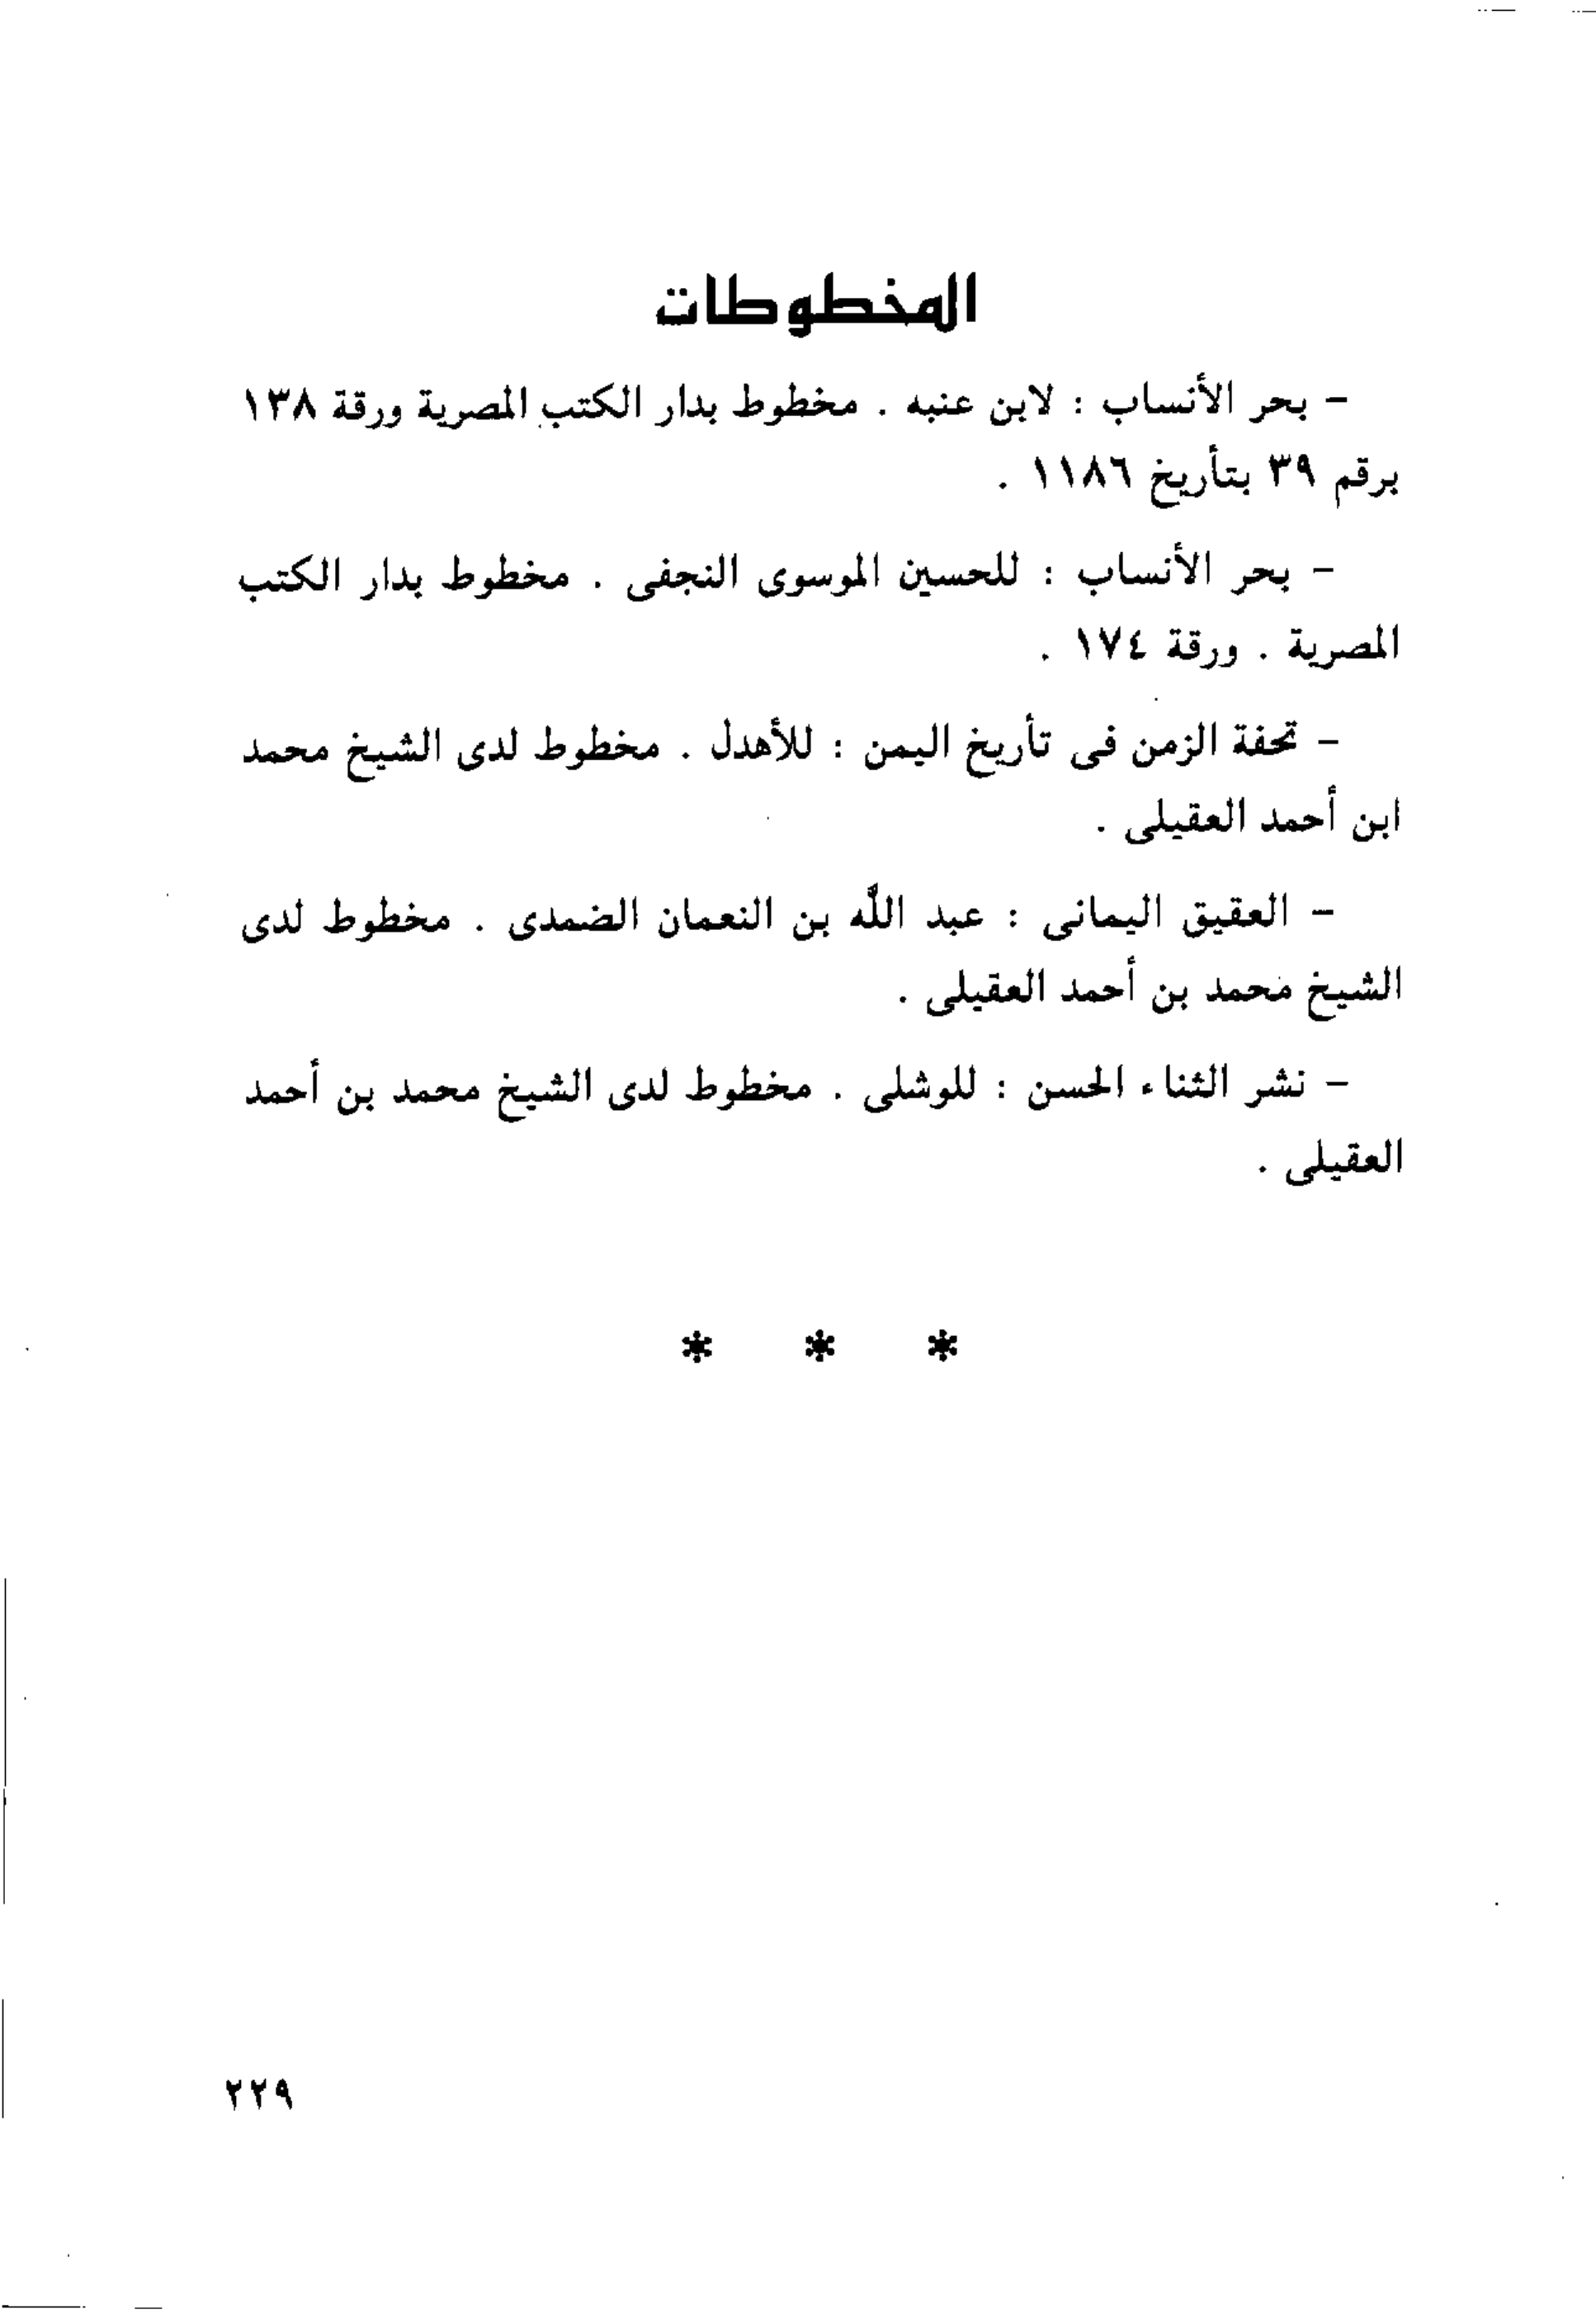 المخطوطات
- بحر الأنساب : لابن عنبه . مخطوط بدار الكتب المصرية ورقة ١٣٨
برقم ٣٩ بتأريخ ١١٨٦ .
- بحر الأنساب : للحسين الموسوى النجفى . مخطوط بدار الكتب
المصرية . ورقة ١٧٤ .
- تحفة الزمن فى تأريخ اليمن : للأهدل . مخطوط لدى الشيخ محمد
ابن أحمد العقيلى .
- العقيق اليمانى : عبد الله بن النعمان الضمدى . مخطوط لدى
الشيخ محمد بن أحمد العقيلى .
- نشر الثناء الحسن : للوشلى . مخطوط لدى الشيخ محمد بن أحمد
العقيلى .
* * *
٢٢٩